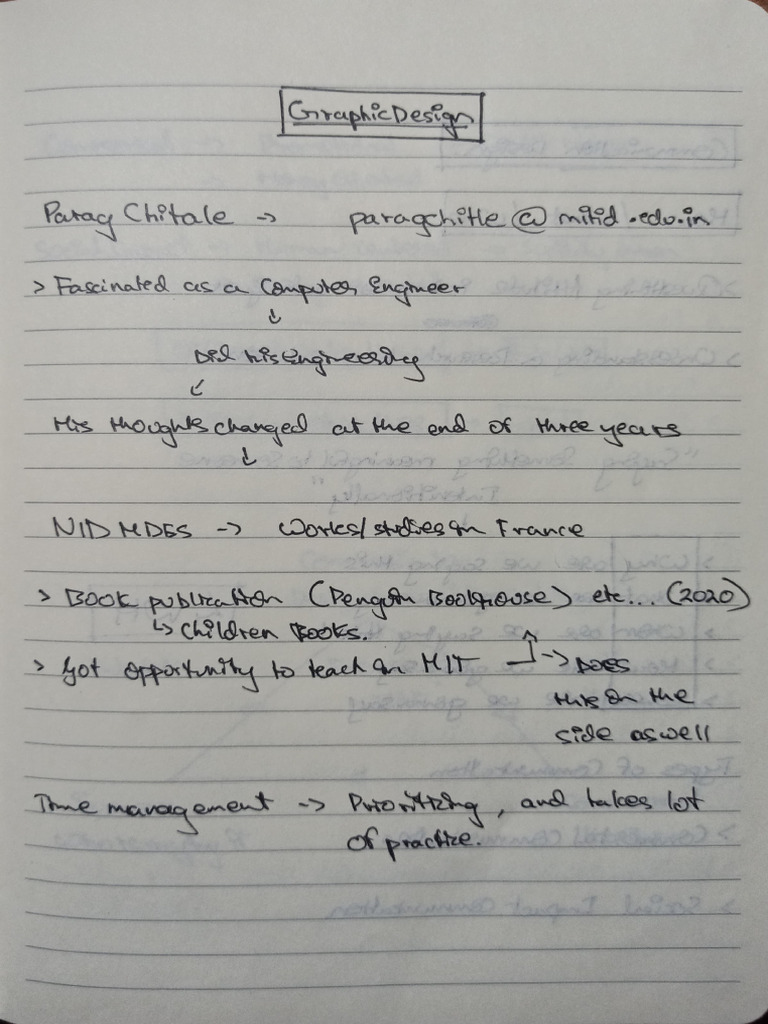 Graphic Design
Parag Chitale → paragchitle@mitid.edu.in
> Fascinated as a Computer Engineer
↓
Did his Engineering
↙
His thoughts changed at the end of three years
↓
NID MDES → Works/studies in France
> Book publication (Penguin Bookhouse) etc... (2020)
↳ Children Books.
> Got opportunity to teach in MIT → Does
this on the
side as well
Time management → Prioritizing, and takes lot
of practice.